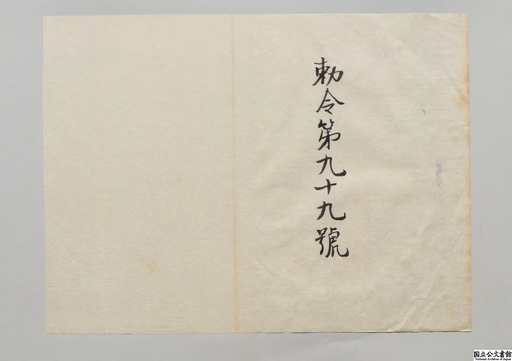 勅令第九十九號
国立公文書館
National Archives of Japan